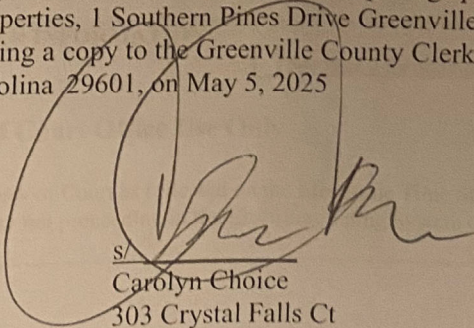 perties, 1 Southern Pines Drive Greenville
ing a copy to the Greenville County Clerk
olina 29601, on May 5, 2025
s/
Carolyn Choice
303 Crystal Falls Ct